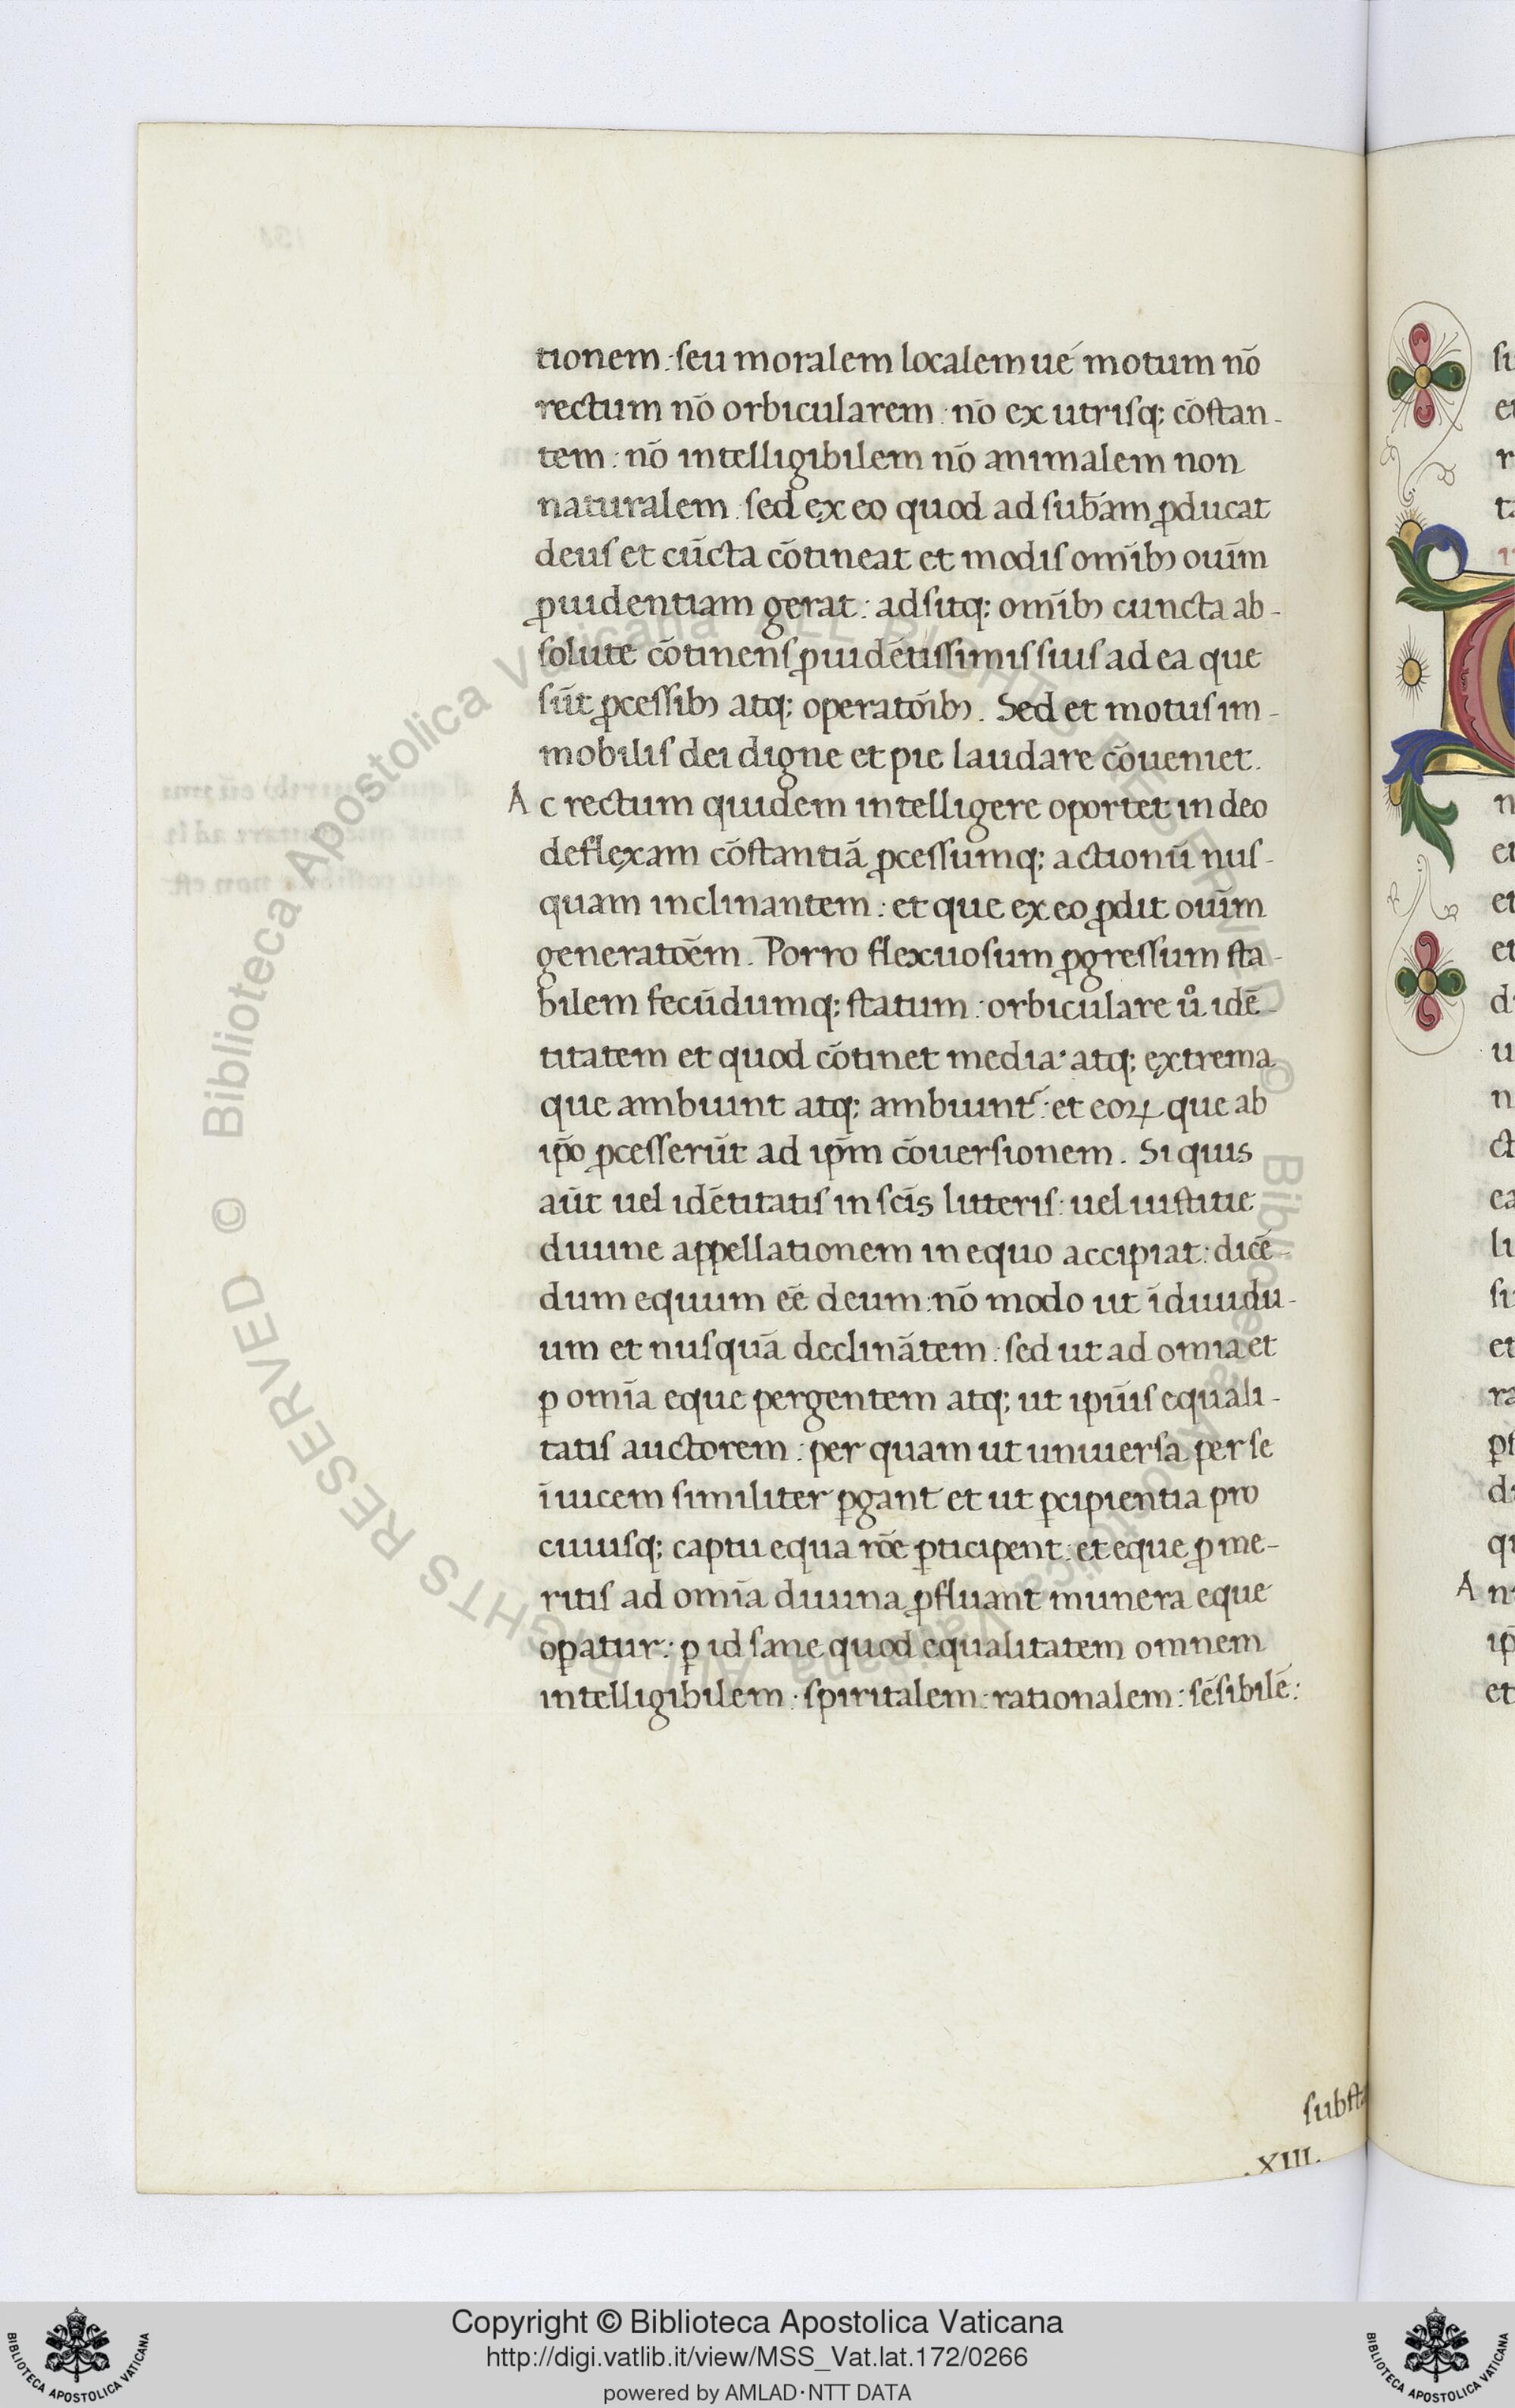 tionem : seu moralem localemue motum nō
rectum nō orbicularem : nō ex utrisq; cōstan-
tem : nō intelligibilem nō animalem non
naturalem . sed ex eo quod ad sub̄am ꝓducat
deus et cūcta cōtineat et modis om̄ib9 ouīm
ꝓuidentiam gerat : adsitq; om̄ib9 cuncta ab-
solute cōtinens ꝓuidētissimis suis ad ea que
sūt ꝓcessib9 atq; operatōib9 . Sed et motus im-
mobilis dei digne et pie laudare cōueniet .
Ac rectum quidem intelligere oportet in deo
deflexam cōstantiā ꝓcessumq; actionū nus-
quam inclinantem : et que ex eo ꝓdit ouīm
generatōem . Porro flexuosum ꝓgressum sta-
bilem fecūdumq; statum : orbiculare ů idē-
titatem et quod cōtinet media atq; extrema
que ambiunt atq; ambiunt̄ : et eoꝝ que ab
ip̄o ꝓcesserūt ad ip̄m cōuersionem . Si quis
aūt uel idētitatis in sc̄is litteris : uel iustitie
diuine appellationem in equo accipiat : dicē-
dum equum eē deum : nō modo ut īdiuidu-
um et nusquā declinātem : sed ut ad omīa et
ꝑ omīa eque pergentem atq; ut ip̄ius equali-
tatis auctorem : per quam ut uniuersa per se
īuicem similiter ꝑgant et ut ꝑcipientia pro
cuiusq; captu equa rōe ꝑticipent : et eque ꝓ me-
ritis ad omīa diuina ꝓfluant munera eque
oꝑatur : ꝑ id sane quod equalitatem omnem
intelligibilem : spiritalem : rationalem : sēsibilē :
substa
.XIII.
Copyright © Biblioteca Apostolica Vaticana
http://digi.vatlib.it/view/MSS_Vat.lat.172/0266
powered by AMLAD·NTT DATA